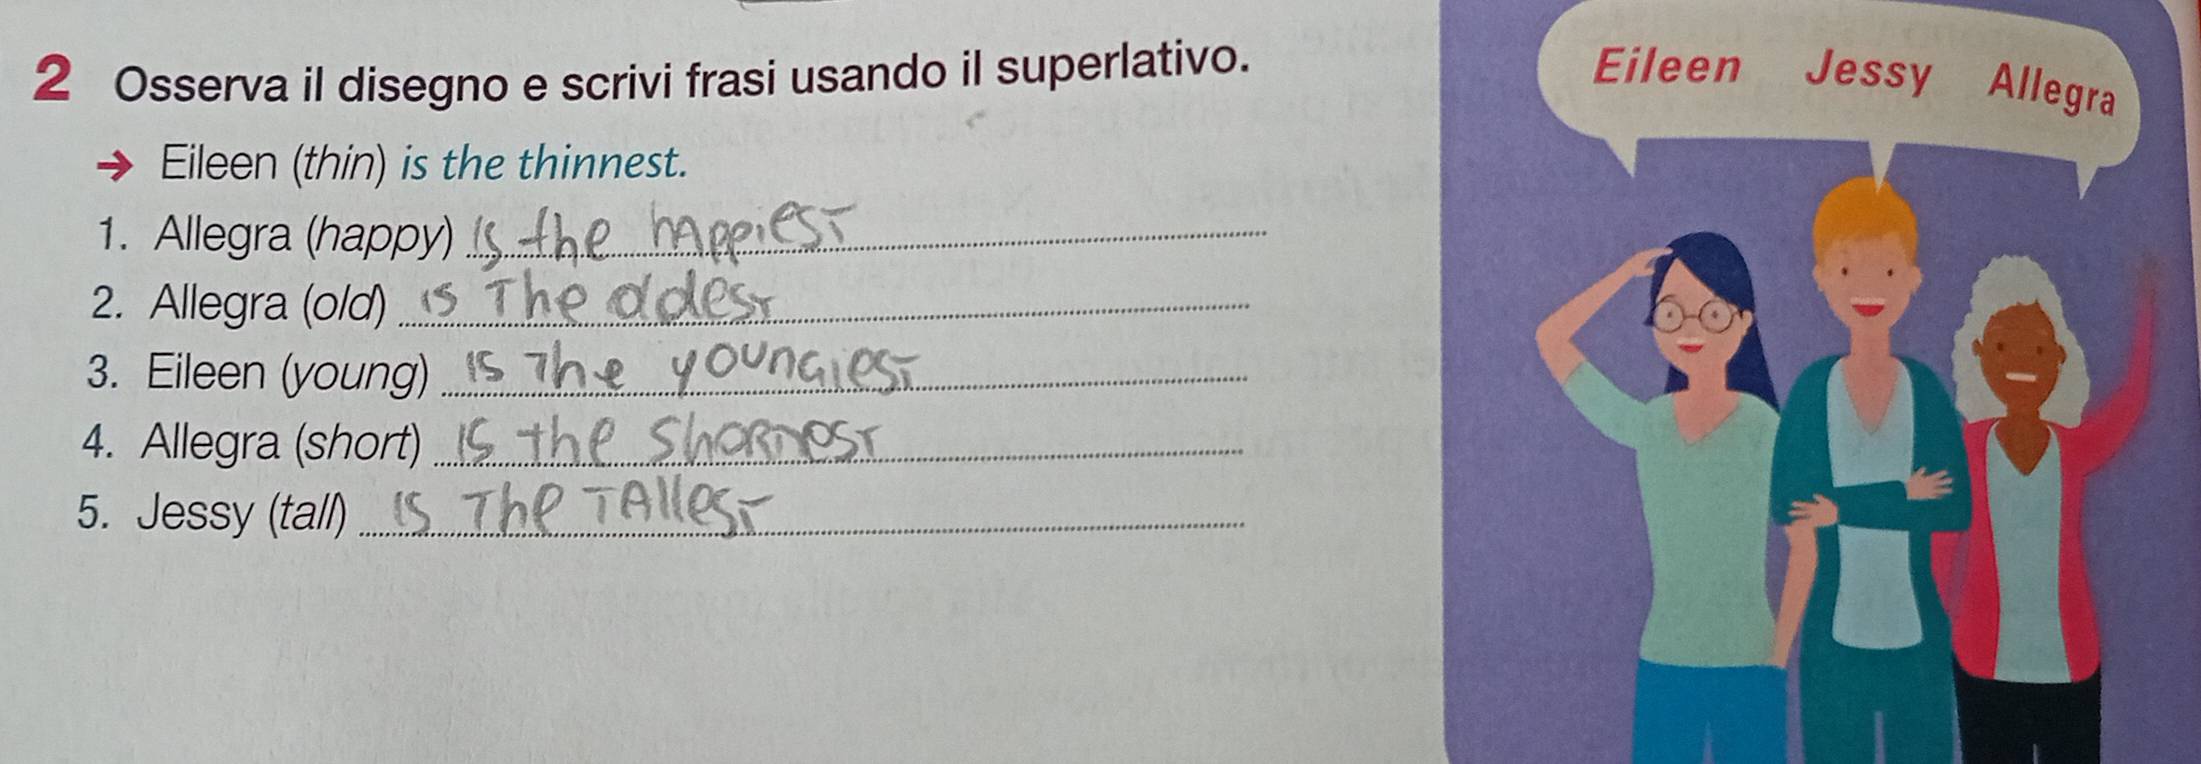 2 Osserva il disegno e scrivi frasi usando il superlativo.
→ Eileen (thin) is the thinnest.
1. Allegra (happy) is the happiest
2. Allegra (old) is The oldest
3. Eileen (young) is The youngiest
4. Allegra (short) is the
5. Jessy (tall) is The TAllest
Eileen Jessy Allegra